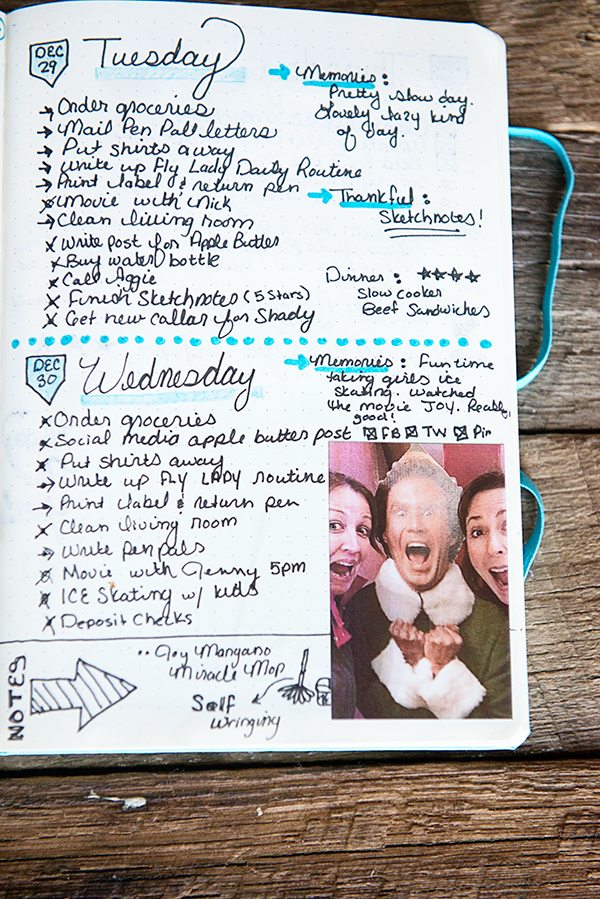 DEC 29 Tuesday
→ Order groceries
→ Mail Pen Pall letters
→ Put shirts away
→ Write up Fly Lady Daily Routine
→ Print label & return pen
Movie with Nick
→ Clean living room
x Write post for Apple Butter
x Buy water bottle
x Call Aggie
x Finish Sketchnotes (5 Stars)
x Get new collar for Shady
→ Memories:
Pretty slow day.
Lovely lazy kind
of day.
→ Thankful:
Sketchnotes!
Dinner: ★★★★
Slow cooker
Beef Sandwiches
DEC 30 Wednesday
x Order groceries
x Social media apple butter post ☒ FB ☒ TW ☒ Pin
x Put shirts away
→ Write up Fly LADY routine
→ Print label & return pen
x Clean living room
→ Write pen pals
Movie with Jenny 5pm
ICE Skating w/ kids
x Deposit Checks
→ Memories: Fun time
taking girls ice
skating. Watched
the movie JOY. Really
good!
NOTES
Joy Mangano
Miracle Mop
Self
wringing